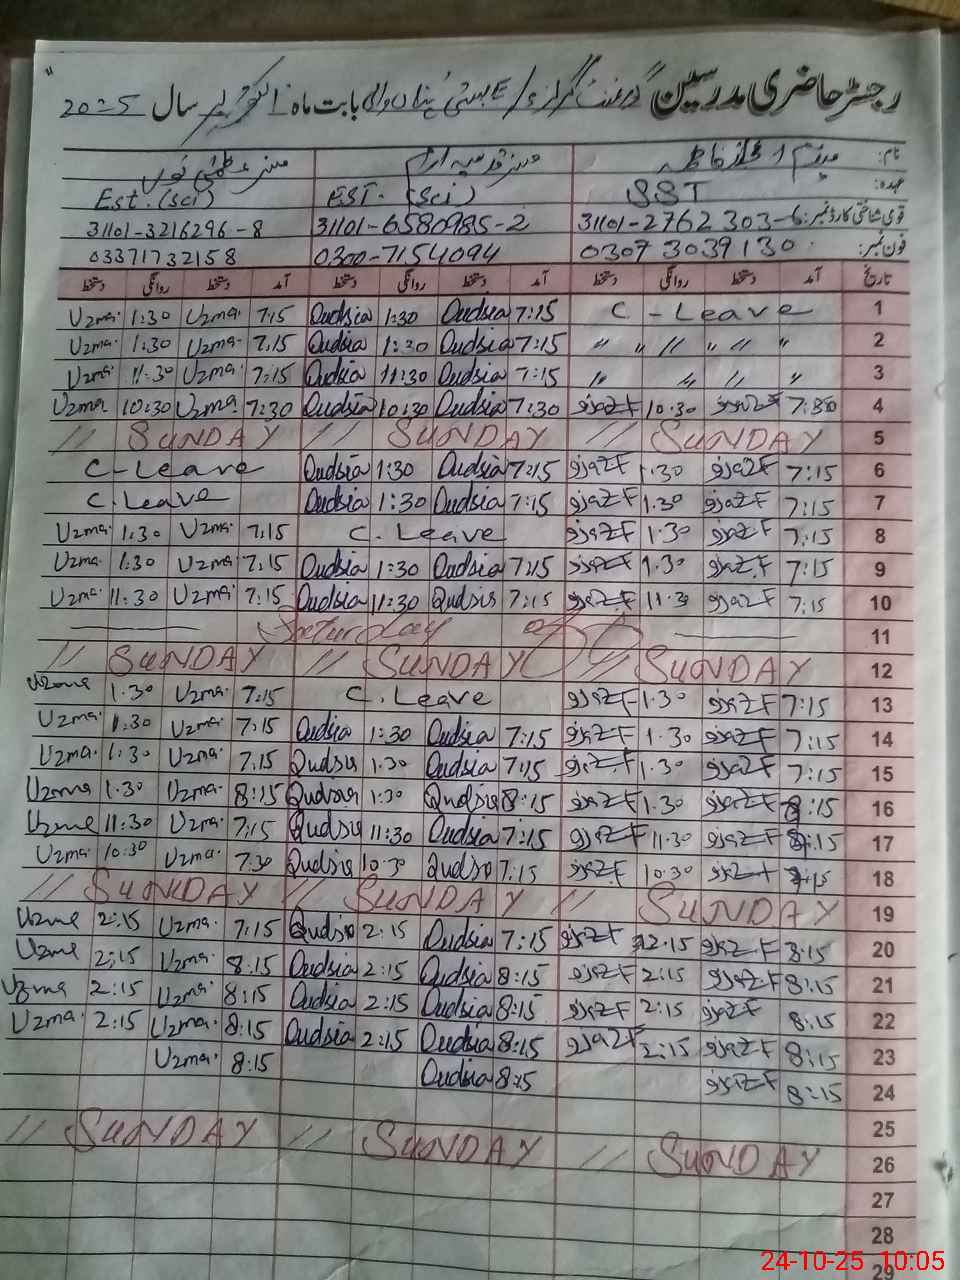 رجسٹر حاضری مدرسین گورنمنٹ گرلز E/S بستی بابت ماہ اکتوبر سال 2025
نام:
عہدہ: SST EST. (Sci) Est. (Sci)
قومی شناختی کارڈ نمبر: 31101-2762303-6 31101-6580985-2 31101-3216296-8
فون نمبر: 03073039130 0300-7154094 03371732158
تاریخ آمد دستخط روانگی دستخط آمد دستخط روانگی دستخط آمد دستخط روانگی دستخط
Uzma. 1:30 Uzma. 7:15 Qudsia 1:30 Qudsia 7:15 C-Leave 1
Uzma. 1:30 Uzma. 7:15 Qudsia 1:30 Qudsia 7:15 " " // " // " 2
Uzma. 11:30 Uzma. 7:15 Qudsia 11:30 Qudsia 7:15 " // // " 3
Uzma 10:30 Uzma. 7:30 Qudsia 10:30 Qudsia 7:30 10:30 7:30 4
// SUNDAY // SUNDAY // SUNDAY 5
C-Leave Qudsia 1:30 Qudsia 7:15 1:30 7:15 6
C.Leave Qudsia 1:30 Qudsia 7:15 1:30 7:15 7
Uzma. 1:30 Uzma. 7:15 C.Leave 1:30 7:15 8
Uzma. 1:30 Uzma. 7:15 Qudsia 1:30 Qudsia 7:15 1.30 7:15 9
Uzma. 11:30 Uzma. 7:15 Qudsia 11:30 Qudsia 7:15 11.30 7:15 10
Saturday 11
// SUNDAY // SUNDAY // SUNDAY 12
Uzma 1.30 Uzma. 7:15 C.Leave 1.30 7:15 13
Uzma. 1:30 Uzma. 7:15 Qudsia 1:30 Qudsia 7:15 1.30 7:15 14
Uzma. 1:30 Uzma. 7.15 Qudsia 1.30 Qudsia 7:15 1.30 7:15 15
Uzma 1.30 Uzma. 8:15 Qudsia 1:30 Qudsia 8:15 1.30 8:15 16
Uzma 11:30 Uzma. 7:15 Qudsia 11:30 Qudsia 7:15 11.30 :15 17
Uzma. 10:30 Uzma. 7.30 Qudsia 10:30 Qudsia 7:15 10:30 18
// SUNDAY // SUNDAY // SUNDAY 19
Uzma 2:15 Uzma. 7:15 Qudsia 2:15 Qudsia 7:15 2.15 8:15 20
Uzma 2:15 Uzma. 8:15 Qudsia 2:15 Qudsia 8:15 2:15 8:15 21
Uzma 2:15 Uzma. 8:15 Qudsia 2:15 Qudsia 8:15 2:15 8:15 22
Uzma. 2:15 Uzma. 8:15 Qudsia 2:15 Qudsia 8:15 2:15 8:15 23
Uzma. 8:15 Qudsia 8:15 8:15 24
25
// SUNDAY // SUNDAY // SUNDAY 26
27
28
29
24-10-25 10:05